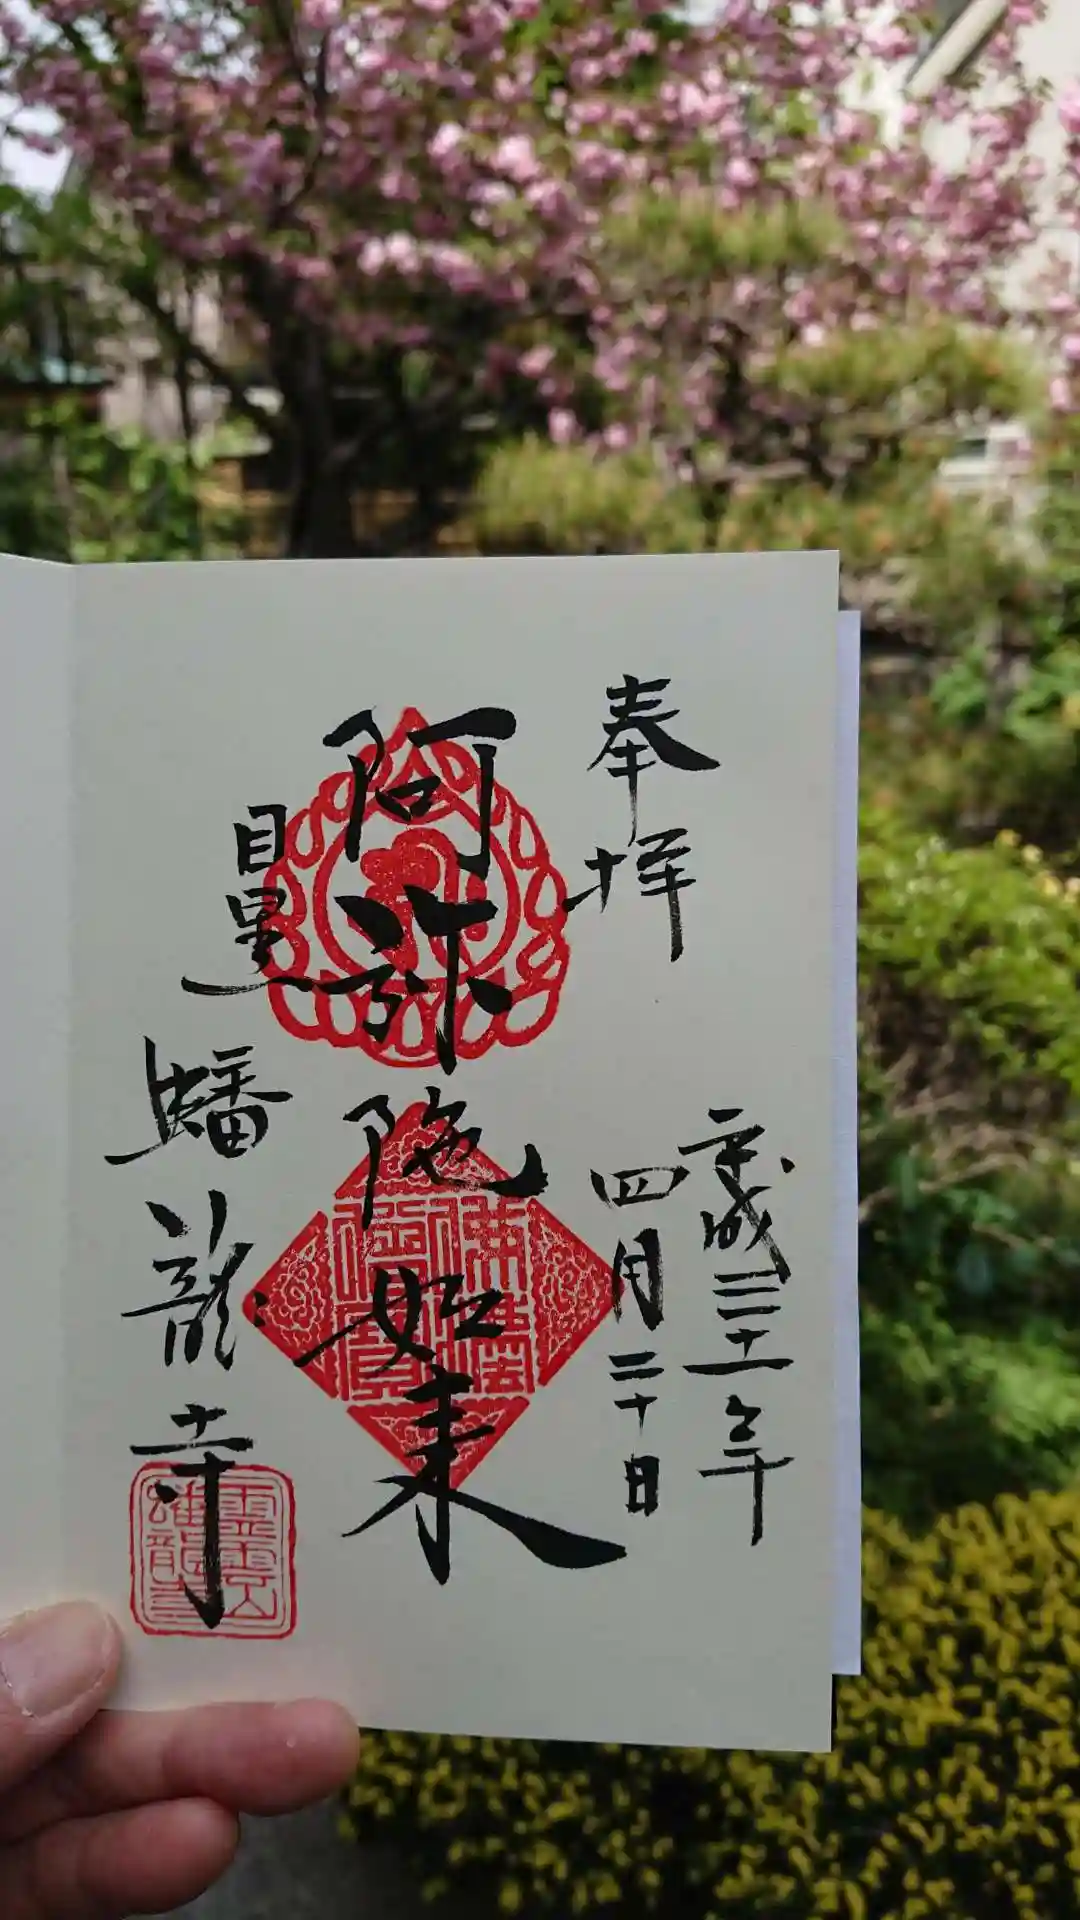 奉拝
平成三十一年
四月二十日
阿弥陀如来
目黒
蟠龍寺
佛法僧寳
霊雲山
蟠龍寺